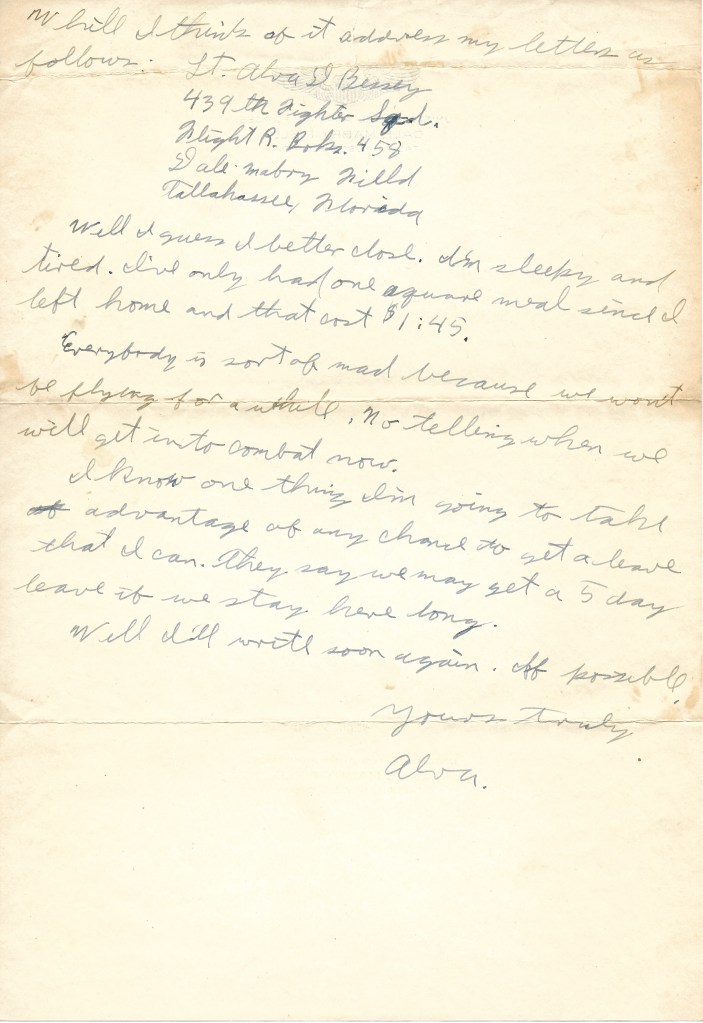 While I think of it address my letters as
follows. Lt. Alva D Bessey
439 th Fighter Sqd.
Flight R. Boks. 458
Dale mabry Field
Tallahassee, Florida
Well I guess I better close. I'm sleepy and
tired. I've only had one square meal since I
left home and that cost $1:45.
Everybody is sort of mad because we won't
be flying for a while. No telling when we
will get into combat now.
I know one thing I'm going to take
advantage of any chance to get a leave
that I can. They say we may get a 5 day
leave if we stay here long.
Well I'll write soon again. If possible.
Yours truly
Alva.